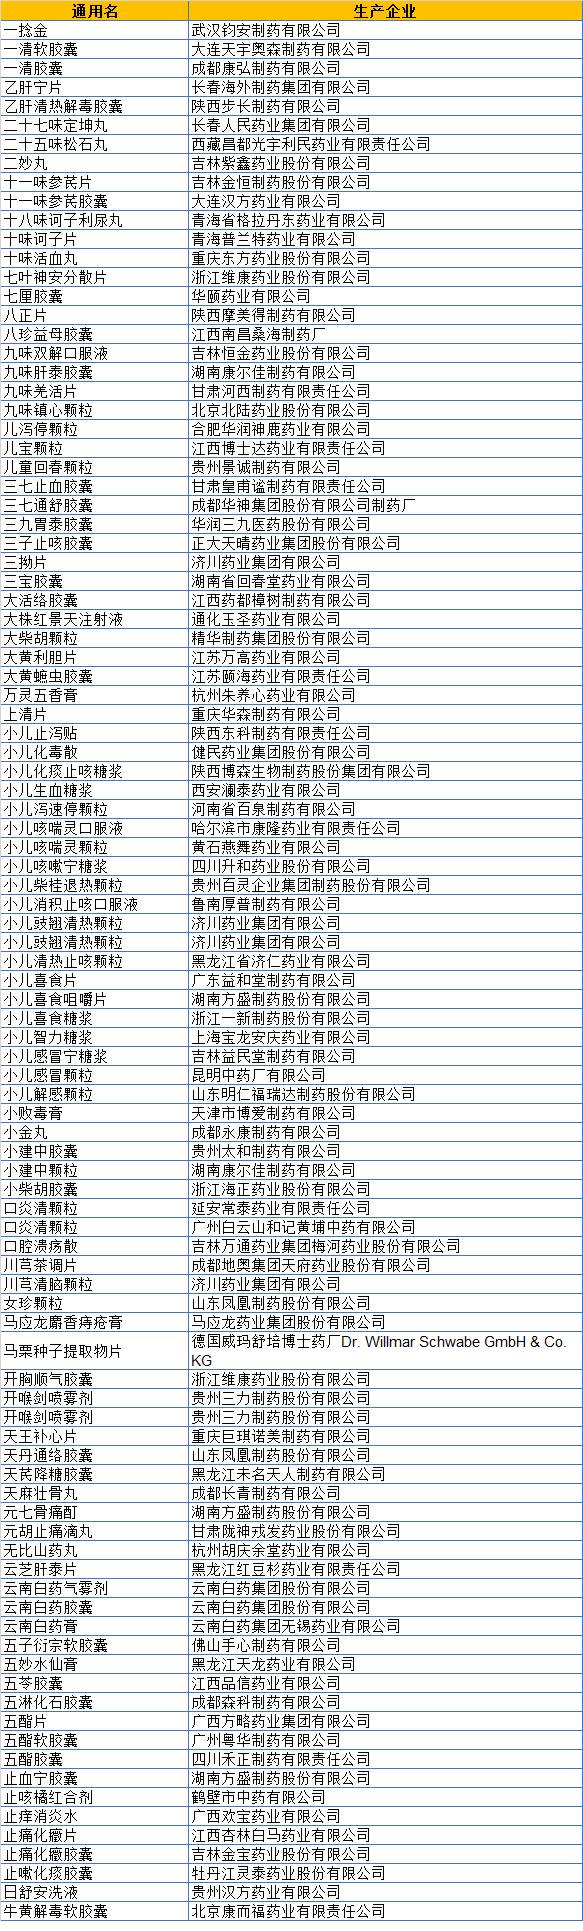 通用名 生产企业
一捻金 武汉钧安制药有限公司
一清软胶囊 大连天宇奥森制药有限公司
一清胶囊 成都康弘制药有限公司
乙肝宁片 长春海外制药集团有限公司
乙肝清热解毒胶囊 陕西步长制药有限公司
二十七味定坤丸 长春人民药业集团有限公司
二十五味松石丸 西藏昌都光宇利民药业有限责任公司
二妙丸 吉林紫鑫药业股份有限公司
十一味参芪片 吉林金恒制药股份有限公司
十一味参芪胶囊 大连汉方药业有限公司
十八味诃子利尿丸 青海省格拉丹东药业有限公司
十味诃子片 青海普兰特药业有限公司
十味活血丸 重庆东方药业股份有限公司
七叶神安分散片 浙江维康药业股份有限公司
七厘胶囊 华颐药业有限公司
八正片 陕西摩美得制药有限公司
八珍益母胶囊 江西南昌桑海制药厂
九味双解口服液 吉林恒金药业股份有限公司
九味肝泰胶囊 湖南康尔佳制药有限公司
九味羌活片 甘肃河西制药有限责任公司
九味镇心颗粒 北京北陆药业股份有限公司
儿泻停颗粒 合肥华润神鹿药业有限公司
儿宝颗粒 江西博士达药业有限责任公司
儿童回春颗粒 贵州景诚制药有限公司
三七止血胶囊 甘肃皇甫谧制药有限责任公司
三七通舒胶囊 成都华神集团股份有限公司制药厂
三九胃泰胶囊 华润三九医药股份有限公司
三子止咳胶囊 正大天晴药业集团股份有限公司
三拗片 济川药业集团有限公司
三宝胶囊 湖南省回春堂药业有限公司
大活络胶囊 江西药都樟树制药有限公司
大株红景天注射液 通化玉圣药业有限公司
大柴胡颗粒 精华制药集团股份有限公司
大黄利胆片 江苏万高药业有限公司
大黄蟅虫胶囊 江苏颐海药业有限责任公司
万灵五香膏 杭州朱养心药业有限公司
上清片 重庆华森制药有限公司
小儿止泻贴 陕西东科制药有限责任公司
小儿化毒散 健民药业集团股份有限公司
小儿化痰止咳糖浆 陕西博森生物制药股份集团有限公司
小儿生血糖浆 西安澜泰药业有限公司
小儿泻速停颗粒 河南省百泉制药有限公司
小儿咳喘灵口服液 哈尔滨市康隆药业有限责任公司
小儿咳喘灵颗粒 黄石燕舞药业有限公司
小儿咳嗽宁糖浆 四川升和药业股份有限公司
小儿柴桂退热颗粒 贵州百灵企业集团制药股份有限公司
小儿消积止咳口服液 鲁南厚普制药有限公司
小儿豉翘清热颗粒 济川药业集团有限公司
小儿豉翘清热颗粒 济川药业集团有限公司
小儿清热止咳颗粒 黑龙江省济仁药业有限公司
小儿喜食片 广东益和堂制药有限公司
小儿喜食咀嚼片 湖南方盛制药股份有限公司
小儿喜食糖浆 浙江一新制药股份有限公司
小儿智力糖浆 上海宝龙安庆药业有限公司
小儿感冒宁糖浆 吉林益民堂制药有限公司
小儿感冒颗粒 昆明中药厂有限公司
小儿解感颗粒 山东明仁福瑞达制药股份有限公司
小败毒膏 天津市博爱制药有限公司
小金丸 成都永康制药有限公司
小建中胶囊 贵州太和制药有限公司
小建中颗粒 湖南康尔佳制药有限公司
小柴胡胶囊 浙江海正药业股份有限公司
口炎清颗粒 延安常泰药业有限责任公司
口炎清颗粒 广州白云山和记黄埔中药有限公司
口腔溃疡散 吉林万通药业集团梅河药业股份有限公司
川芎茶调片 成都地奥集团天府药业股份有限公司
川芎清脑颗粒 济川药业集团有限公司
女珍颗粒 山东凤凰制药股份有限公司
马应龙麝香痔疮膏 马应龙药业集团股份有限公司
马栗种子提取物片 德国威玛舒培博士药厂Dr. Willmar Schwabe GmbH & Co.
KG
开胸顺气胶囊 浙江维康药业股份有限公司
开喉剑喷雾剂 贵州三力制药股份有限公司
开喉剑喷雾剂 贵州三力制药股份有限公司
天王补心片 重庆巨琪诺美制药有限公司
天丹通络胶囊 山东凤凰制药股份有限公司
天芪降糖胶囊 黑龙江未名天人制药有限公司
天麻壮骨丸 成都长青制药有限公司
元七骨痛酊 湖南方盛制药股份有限公司
元胡止痛滴丸 甘肃陇神戎发药业股份有限公司
无比山药丸 杭州胡庆余堂药业有限公司
云芝肝泰片 黑龙江红豆杉药业有限责任公司
云南白药气雾剂 云南白药集团股份有限公司
云南白药胶囊 云南白药集团股份有限公司
云南白药膏 云南白药集团无锡药业有限公司
五子衍宗软胶囊 佛山手心制药有限公司
五妙水仙膏 黑龙江天龙药业有限公司
五苓胶囊 江西品信药业有限公司
五淋化石胶囊 成都森科制药有限公司
五酯片 广西方略药业集团有限公司
五酯软胶囊 广州粤华制药有限公司
五酯胶囊 四川禾正制药有限责任公司
止血宁胶囊 湖南方盛制药股份有限公司
止咳橘红合剂 鹤壁市中药有限公司
止痒消炎水 广西欢宝药业有限公司
止痛化癥片 江西杏林白马药业有限公司
止痛化癥胶囊 吉林金宝药业股份有限公司
止嗽化痰胶囊 牡丹江灵泰药业股份有限公司
日舒安洗液 贵州汉方药业有限公司
牛黄解毒软胶囊 北京康而福药业有限责任公司